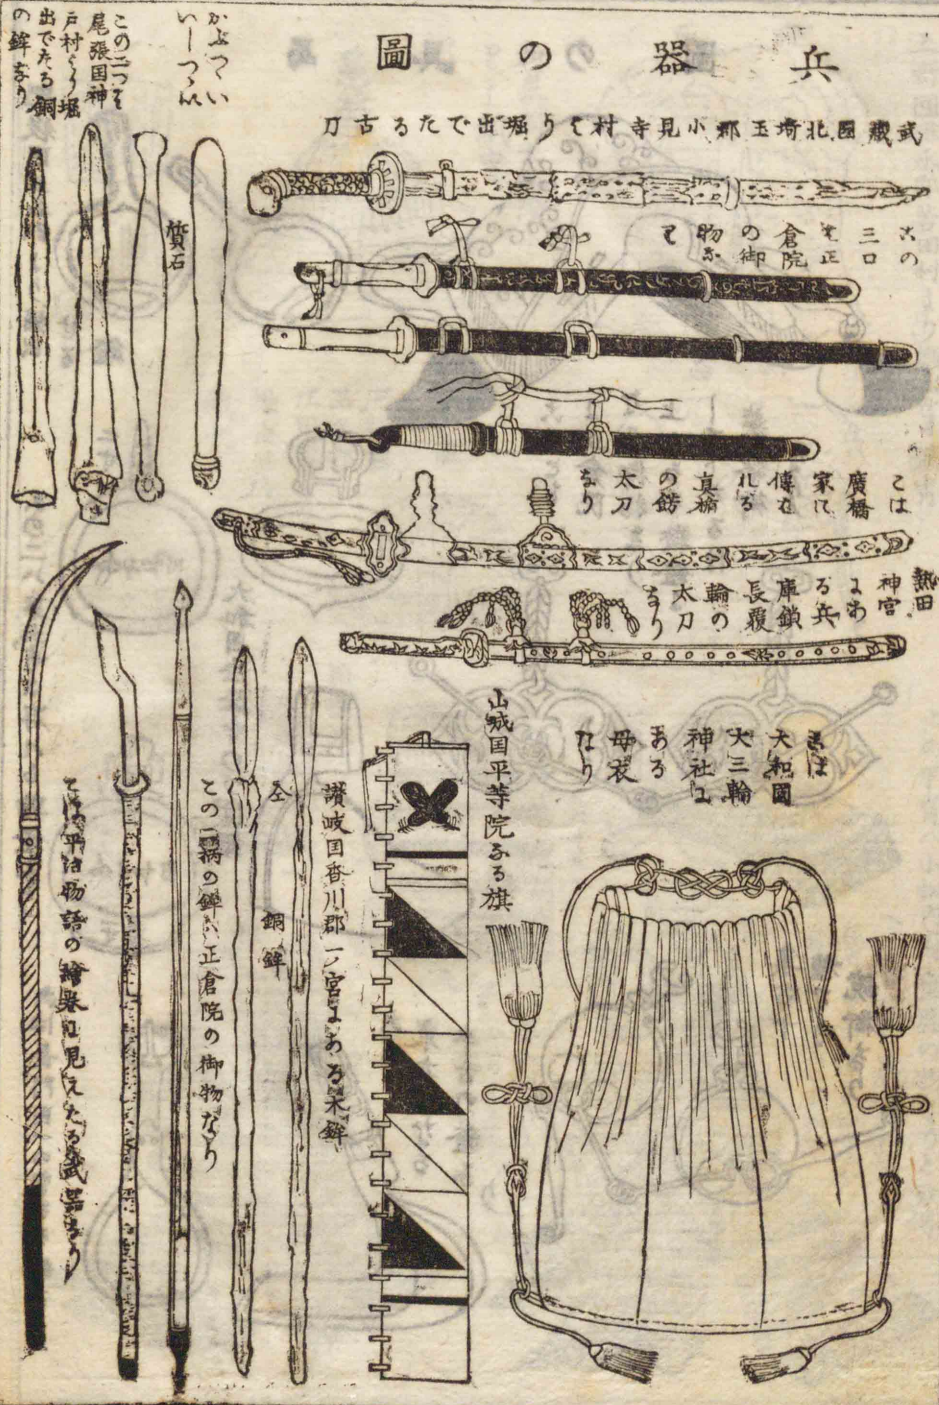 兵器の圖
武藏國北埼玉郡小見寺村より堀出でたる古刀
この
三口
は正
倉院
の御
物な
り
こは
廣橋
家に
傳は
れる
真楯
の餝
太刀
なり
熱田
神宮
にあ
る兵
庫鎖
長覆
輪の
太刀
なり
こは
大和國
大三輪
神社に
ある
母衣
なり
山城国平等院なる旗
讃岐国香川郡一ノ宮にある朱鉾
仝 銅鉾
この二柄の鉾は正倉院の御物なり
こは平治物語の繪巻に見えたる武器なり
かぶつい
いしつい
質石
この二つは
尾張国神
戸村より堀
出でたる銅
の鉾なり